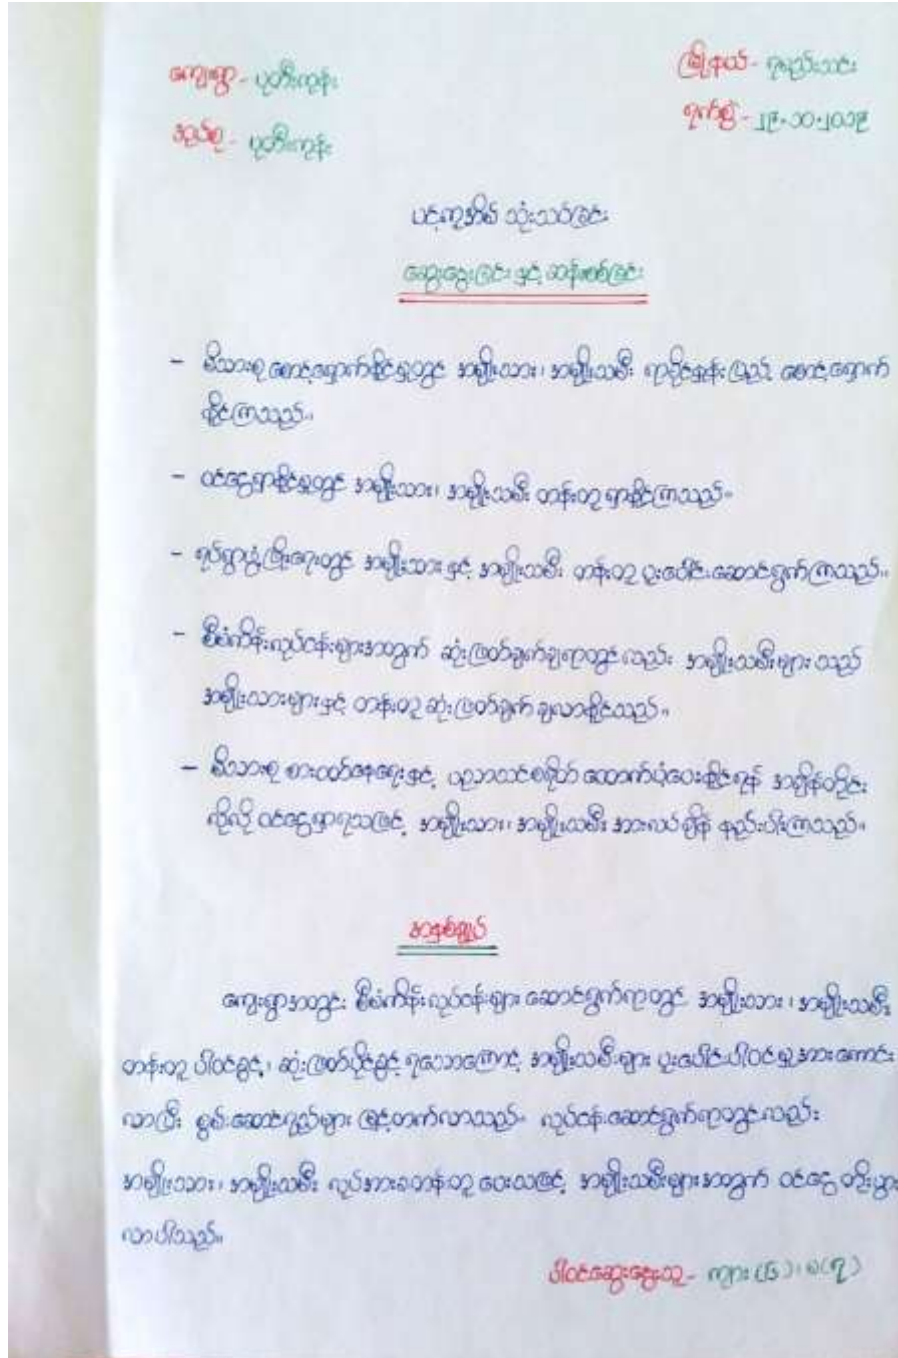 ကျေးရွာ - ပုတီးကုန်း
မြို့နယ် - ရမည်းသင်း
အုပ်စု - ပုတီးကုန်း
ရက်စွဲ - ၂၉-၁၀-၂၀၁၉
ပင့်ကူအိမ် သုံးသပ်ခြင်း
ဆွေးနွေးခြင်း နှင့် ဆန်းစစ်ခြင်း
- မိသားစု စောင့်ရှောက်နိုင်မှုတွင် အမျိုးသား၊ အမျိုးသမီး ရာခိုင်နှုန်း ပြည့် စောင့်ရှောက်
နိုင်ကြသည်။
- ဝင်ငွေရှာနိုင်မှုတွင် အမျိုးသား၊ အမျိုးသမီး တန်းတူ ရှာနိုင်ကြသည်။
- ရပ်ရွာဖွံ့ဖြိုးရေးတွင် အမျိုးသား နှင့် အမျိုးသမီး တန်းတူ ပူးပေါင်းဆောင်ရွက်ကြသည်။
- စီမံကိန်းလုပ်ငန်းများအတွက် ဆုံးဖြတ်ချက်ချရာတွင်လည်း အမျိုးသမီးများ သည်
အမျိုးသားများနှင့် တန်းတူ ဆုံးဖြတ်ချက် ချလာနိုင်သည်။
- မိသားစု စားဝတ်နေရေးနှင့် ပညာသင်စရိတ် ထောက်ပံ့ပေးနိုင်ရန် အချိန်တိုင်း
လိုလို ဝင်ငွေရှာရသဖြင့် အမျိုးသား၊ အမျိုးသမီး အားလပ်ချိန် နည်းပါးကြသည်။
အနှစ်ချုပ်
ကျေးရွာအတွင်း စီမံကိန်းလုပ်ငန်းများ ဆောင်ရွက်ရာတွင် အမျိုးသား ၊ အမျိုးသမီး
တန်းတူ ပါဝင်ခွင့်၊ ဆုံးဖြတ်ပိုင်ခွင့် ရသောကြောင့် အမျိုးသမီးများ ပူးပေါင်းပါဝင်မှု အားကောင်း
လာပြီး စွမ်းဆောင်ရည်များ မြင့်တက်လာသည်။ လုပ်ငန်းဆောင်ရွက်ရာတွင်လည်း
အမျိုးသား၊ အမျိုးသမီး လုပ်အားခတန်းတူ ပေးသဖြင့် အမျိုးသမီးများအတွက် ဝင်ငွေ တိုးပွား
လာပါသည်။
ပါဝင်ဆွေးနွေးသူ - ကျား (၆)၊ မ (၇)